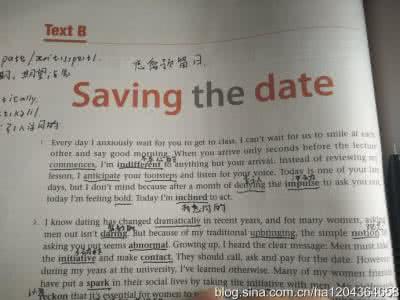 Text B
Saving the date
1 Every day I anxiously wait for you to get to class. I can't wait for us to smile at each
other and say good morning. When you arrive only seconds before the lecture
commences, I'm indifferent to anything but your arrival. Instead of reviewing my
lesson, I anticipate your footsteps and listen for your voice. Today is one of your late
days, but I don't mind because after a month of denying the impulse to ask you out,
today I'm feeling bold. Today I'm inclined to act.
2 I know dating has changed dramatically in recent years, and for many women, asking
men out isn't daring. But because of my traditional upbringing, the simple notion
asking you out seems abnormal. Growing up, I heard the clear message: Men must take
the initiative and make contact. They should call, ask and pay for the date. However
during my years at the university, I've learned otherwise. Many of my women friends
have put a spark in their social lives by taking the initiative with
reckon that it's essential for women to
blog.sina.com.cn/ha1204364653